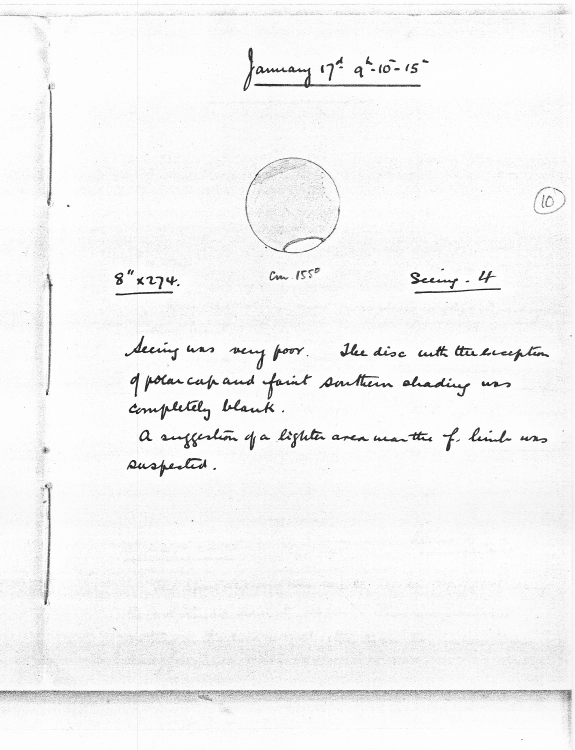 January 17ᵈ 9ʰ-10ᵐ-15ᵐ
10
8" x 274.
cm 155°
Seeing - 4
Seeing was very poor. The disc with the exception
of polar cap and faint southern shading was
completely blank.
A suggestion of a lighter area near the f. limb was
suspected.